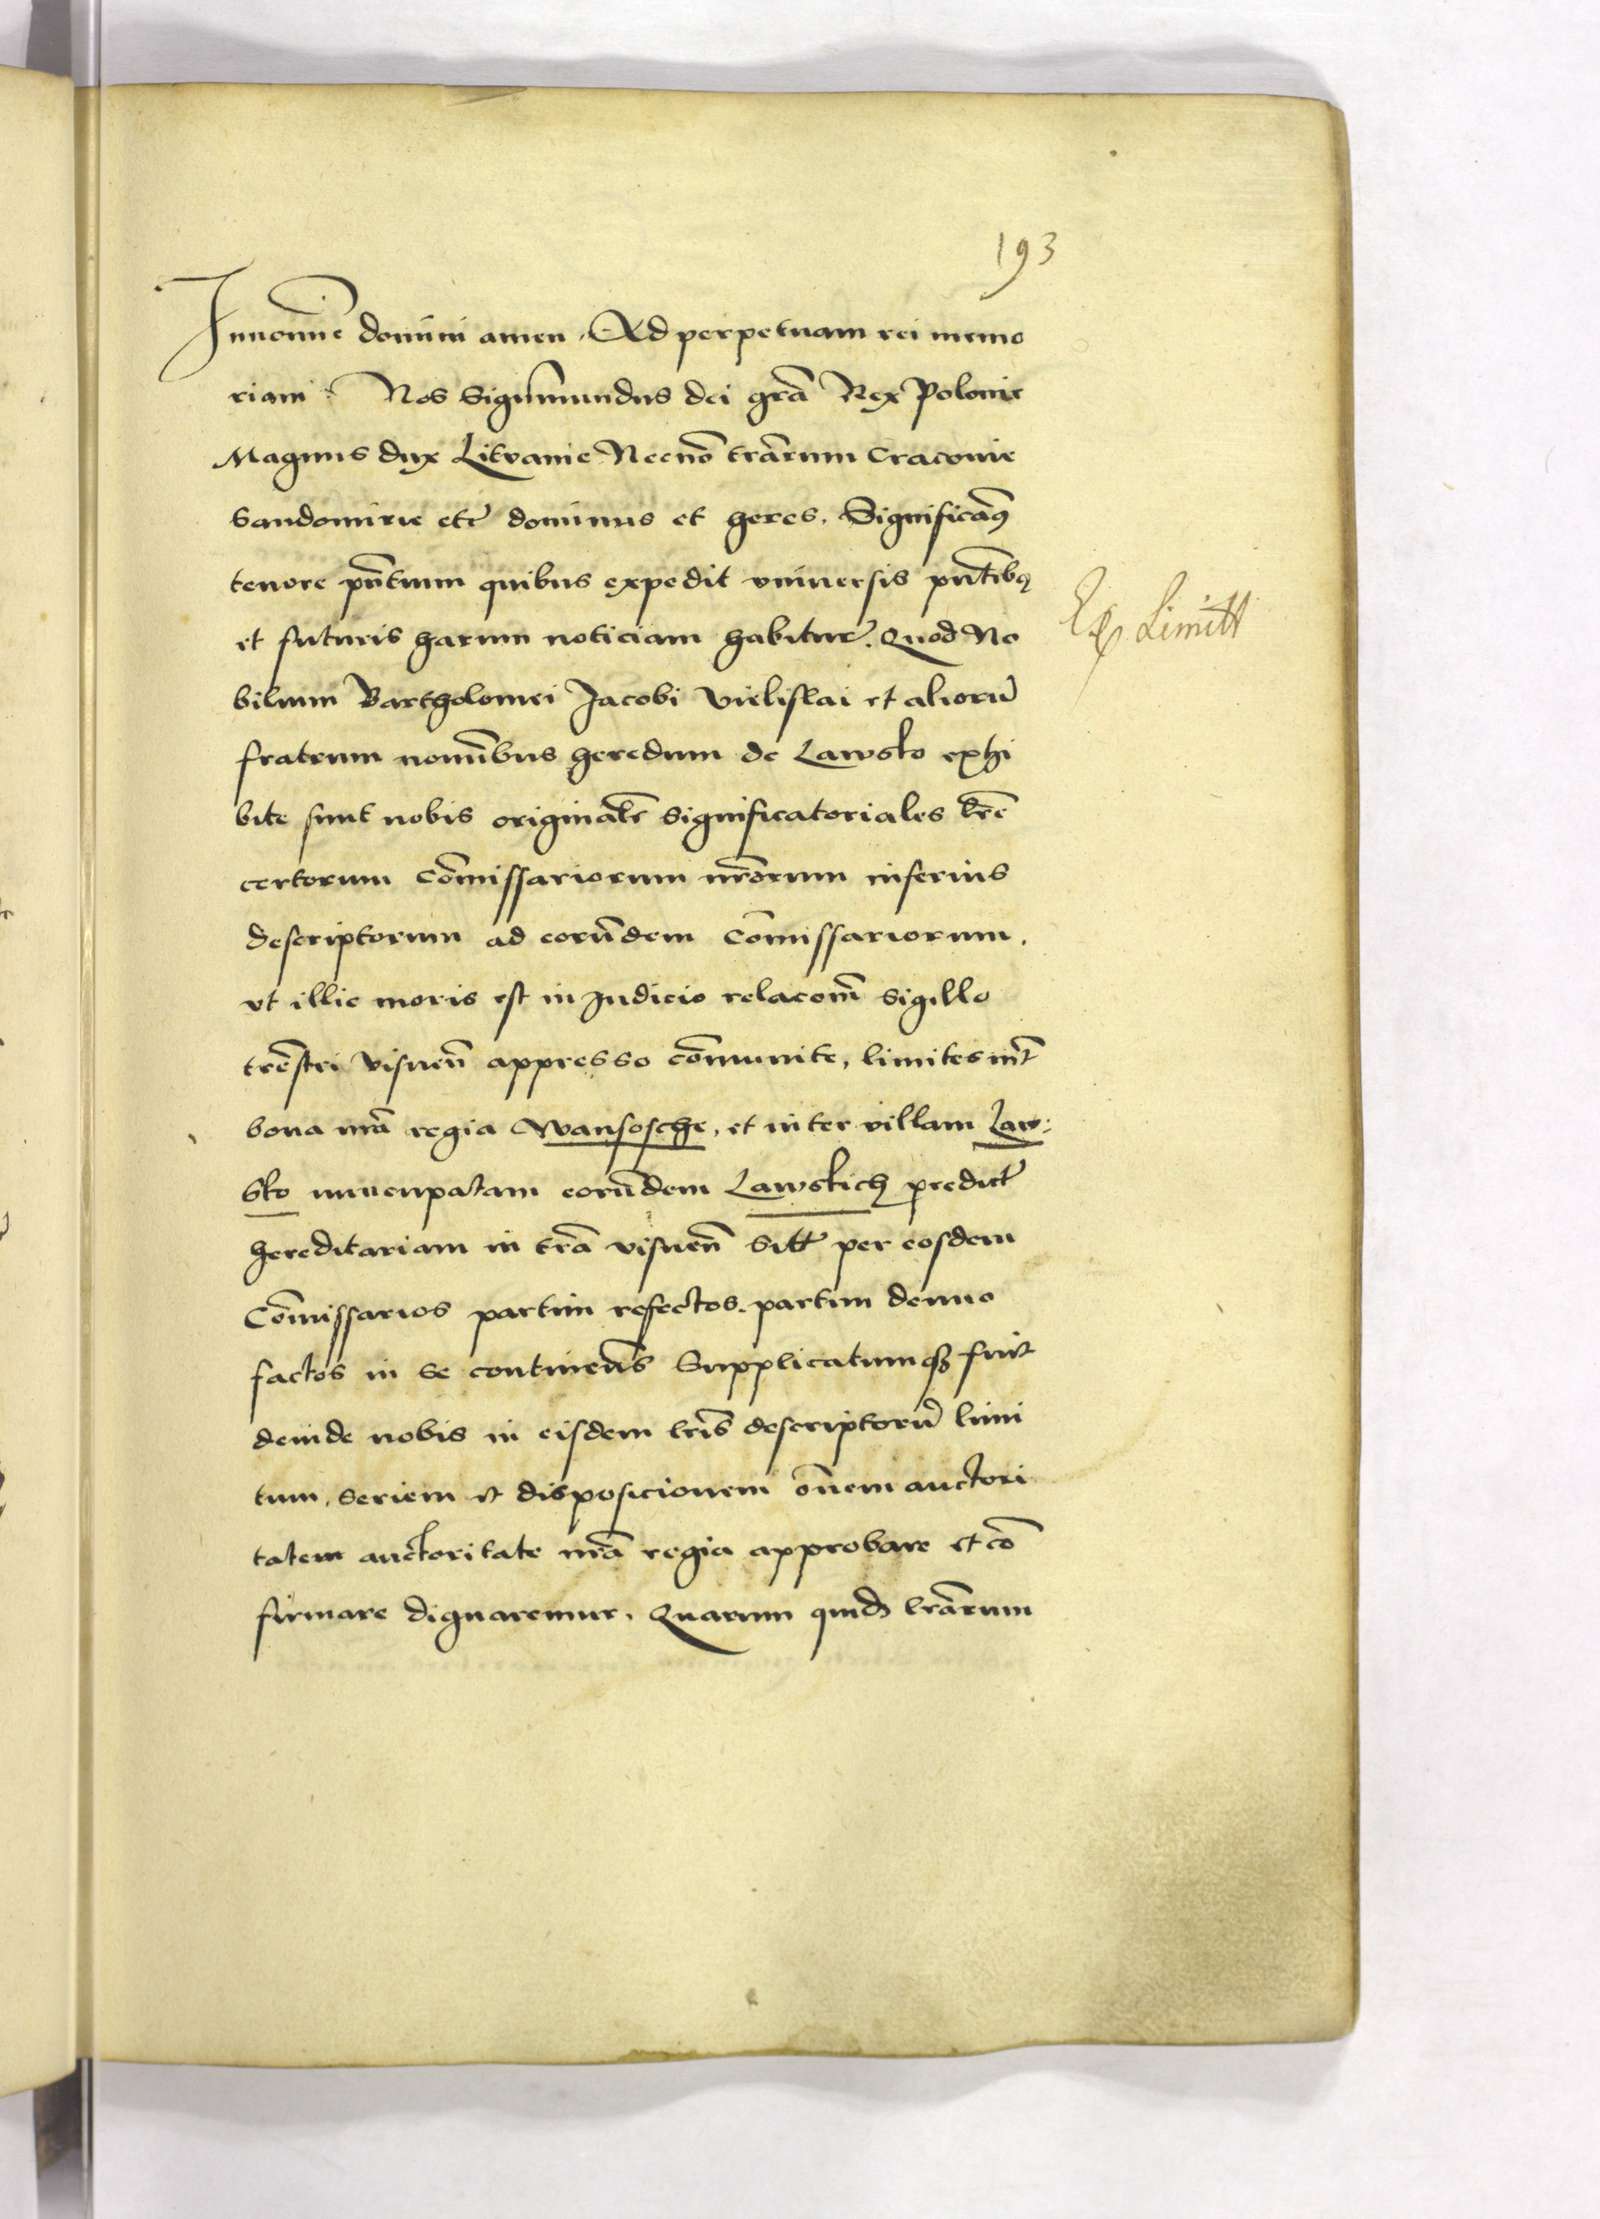 193
Innomīe domini amen. Ad perpetuam rei memo
riam. Nos Sigismundus dei grā Rex Polonie
Magnus dux Litvanie Necnō trārum Cracovie
Sandomirie etc̄ dominus et heres. Significam⁹
tenore pn̄tium quibus expedit vniuersis pn̄tibꝫ
et futuris harum noticiam habitur̄. Quod No
Ex Limitt
bilium Bartholomei Jacobi Vielislai et aliorū
fratrum nomībus heredum de Lawsko exhi
bite sunt nobis originales̄ significatoriales lr̄e
certorum Cōmissariorum nr̄orum inferius
descriptorum ad eorūdem Cōmissariorum.
vt illic moris est in Judicio relacom̄ sigillo
trēstri visnen̄ appresso cōmunite, limites int̄
bona nr̄a regia Wansosche, et inter villam Law:
sko nuncupatam eorūdem Lawskich predict̄
hereditariam in trā visnen̄ Sitt̄ per eosdem
Cōmissarios partim refectos. partim denuo
factos in se continen̄s Supplicatumqꝫ fuit
deinde nobis in eisdem lr̄is descriptorū limi
tum, seriem et disposicionem ōnem auctori
tatem auctoritate nr̄a regia approbare et cō
firmare dignaremur. Quarum quidē lrārum